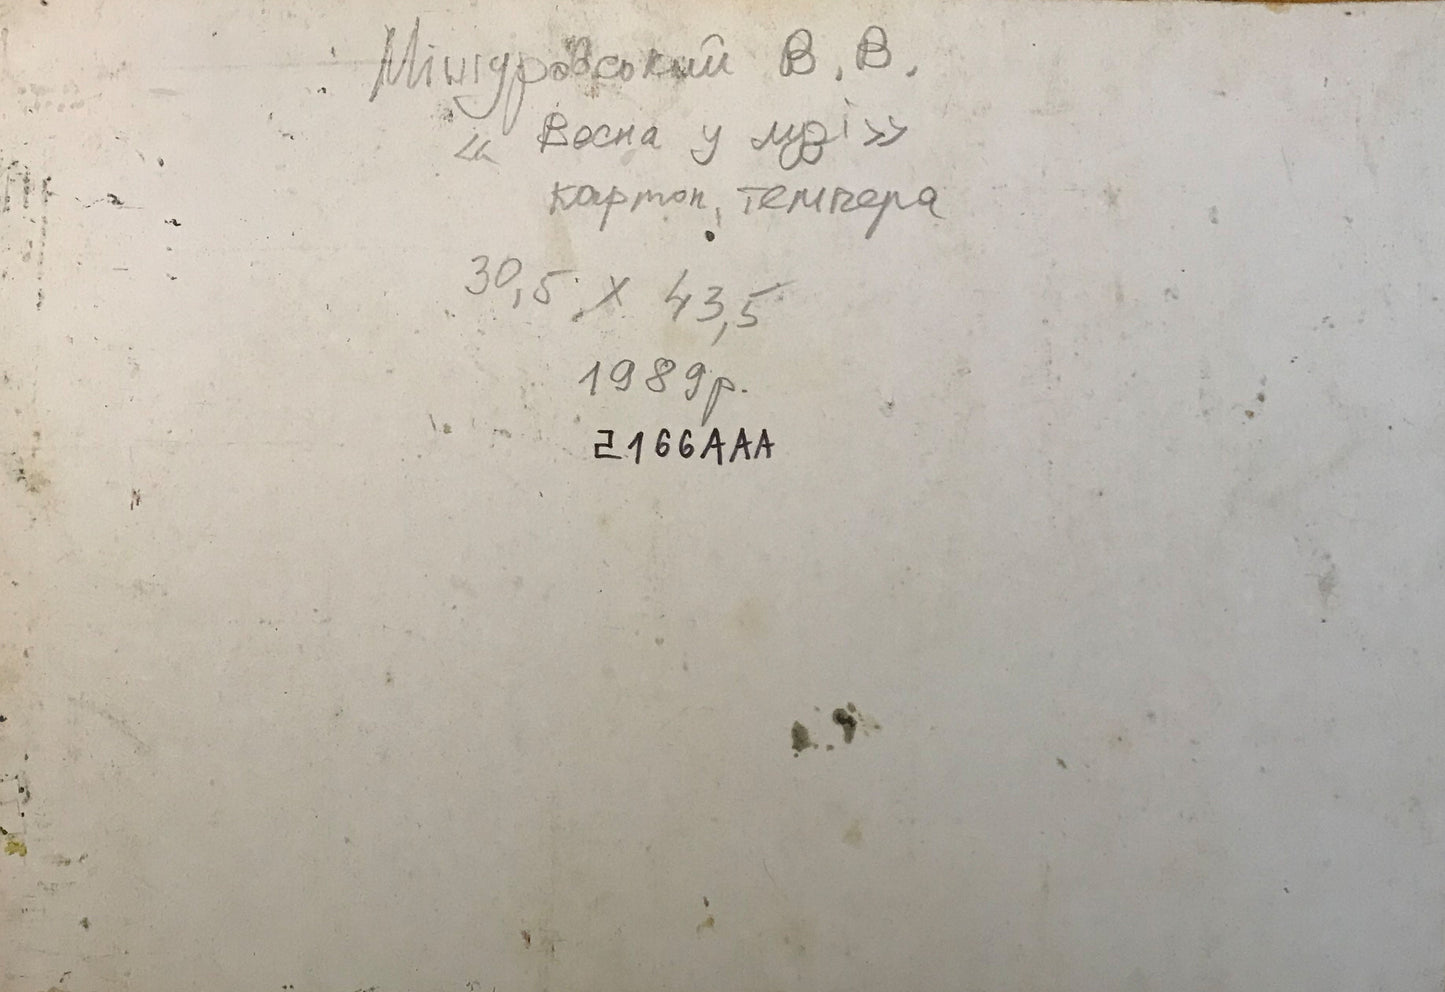 Мінгуровський В. В.
« Весна у музі»
картон, темпера
30,5 х 43,5
1989р.
2166ААА